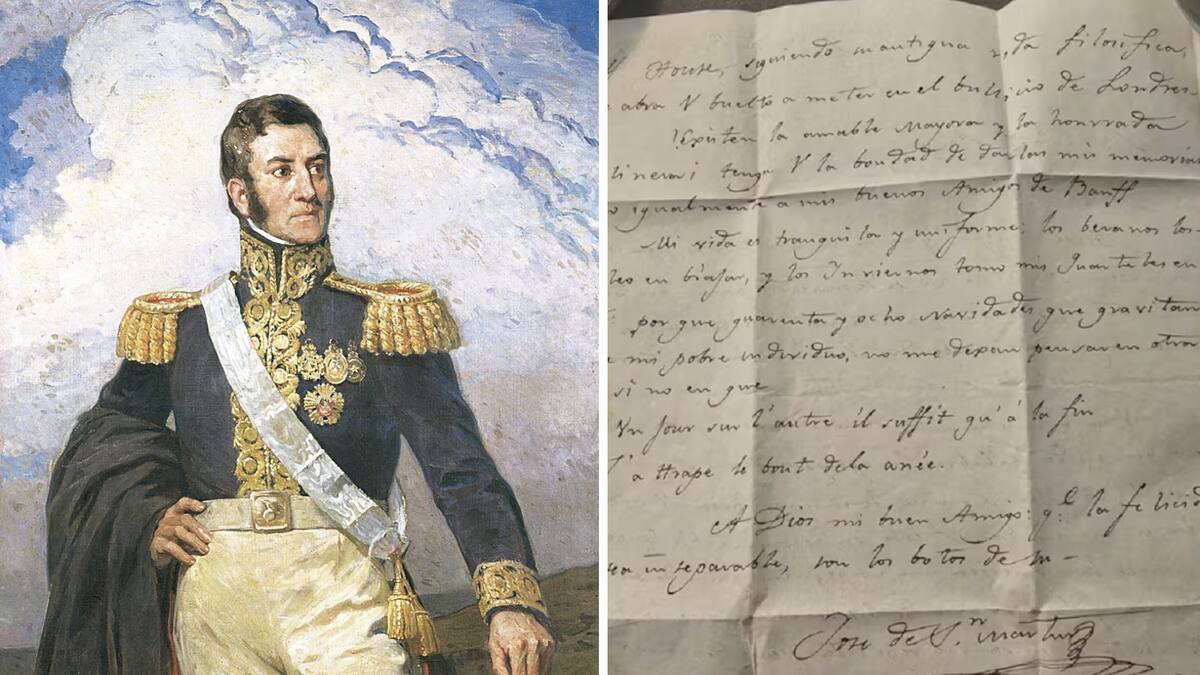 House, siguiendo su antigua vida filosofica,
abra V buelto a meter en el bullicio de Londres.
Existen la amable Mayora y la honrrada
linera; tenga V la bondad de darlas mis memorias
igualmente a mis buenos Amigos de Banff
Mi vida es tranquila y uniforme: los beranos los
en biajar, y los Inviernos tomo mis Quarteles en
por que quarenta y ocho Navidades que gravitan
mi pobre individuo, no me dexan pensar en otra
si no en que
Un jour sur l'autre il suffit qu'á la fin
J'a ttrape le bout dela anée.
A Dios mi buen Amigo: q.e la felicid
inseparable, son los botos de su
Jose de S.n Martin